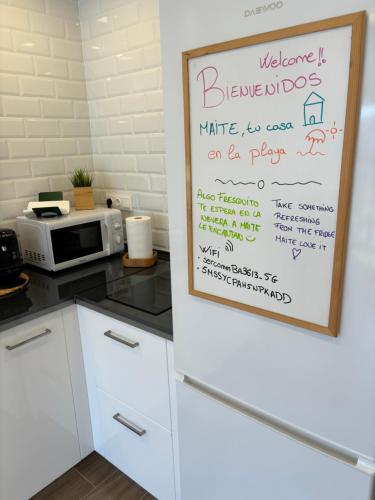 DAEWOO
Welcome!!
BIENVENIDOS
MAITE, tu casa
en la playa
ALGO FRESQUITO
TE ESPERA EN LA
NEVERA. A MAITE
LE ENCANTAN
TAKE SOMETHING
REFRESHING
FROM THE FRIDGE
MAITE LOVE IT
WiFi
• sercommBA3613_5G
• SMSSYCPAH5NPKADD